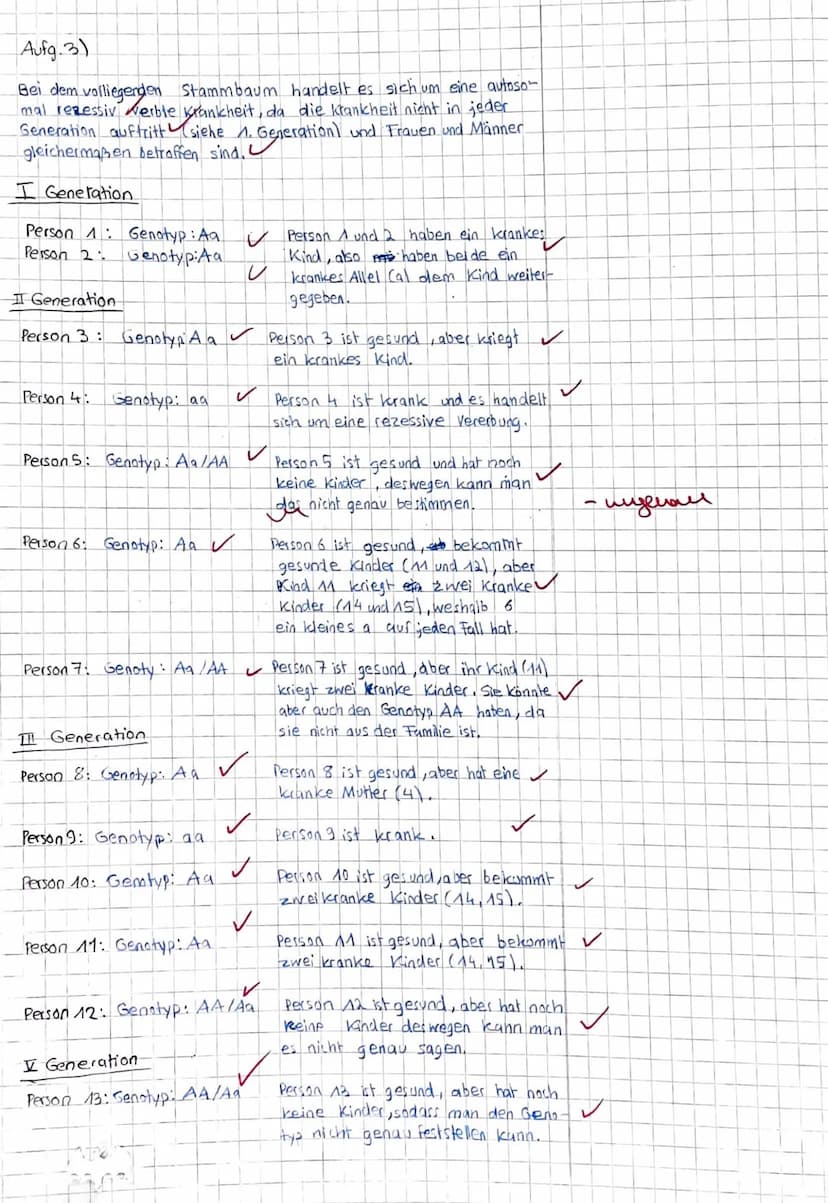 Aufg. 3)
Bei dem volliegenden Stammbaum handelt es sich um eine autoso-
mal rezessiv verble Krankheit, da die Krankheit nicht in jeder
Generation auftritt (siehe 1. Generation) und Frauen und Männer
gleichermaßen betroffen sind.
I Generation
Person 1: Genotyp: Aa Person 1 und 2 haben ein krankes
Person 2: Genotyp: Aa Kind, also haben beide ein
krankes Allel (a) dem Kind weiter-
gegeben.
II Generation
Person 3: Genotyp Aa Person 3 ist gesund, aber kriegt
ein krankes Kind.
Person 4: Genotyp: aa Person 4 ist krank und es handelt
sich um eine rezessive Vererbung.
Person 5: Genotyp: Aa/AA Person 5 ist gesund und hat noch
keine Kinder, deswegen kann man
das nicht genau bestimmen. - ungenau
Person 6: Genotyp: Aa Person 6 ist gesund, bekommt
gesunde Kinder (11 und 12), aber
Kind 11 kriegt zwei kranke
Kinder (14 und 15), weshalb 6
ein kleines a auf jeden Fall hat.
Person 7: Genoty: Aa/AA Person 7 ist gesund, aber ihr Kind (11)
kriegt zwei kranke Kinder. Sie könnte
aber auch den Genotyp AA haben, da
sie nicht aus der Familie ist.
III Generation
Person 8: Genotyp: Aa Person 8 ist gesund, aber hat eine
kranke Mutter (4).
Person 9: Genotyp: aa Person 9 ist krank.
Person 10: Genotyp: Aa Person 10 ist gesund, aber bekommt
zwei kranke Kinder (14, 15).
Person 11: Genotyp: Aa Person 11 ist gesund, aber bekommt
zwei kranke Kinder (14, 15).
Person 12: Genotyp: AA/Aa Person 12 ist gesund, aber hat noch
keine Kinder deswegen kann man
es nicht genau sagen.
V Generation
Person 13: Genotyp: AA/Aa Person 13 ist gesund, aber hat noch
keine Kinder, sodass man den Geno-
typ nicht genau feststellen kann.